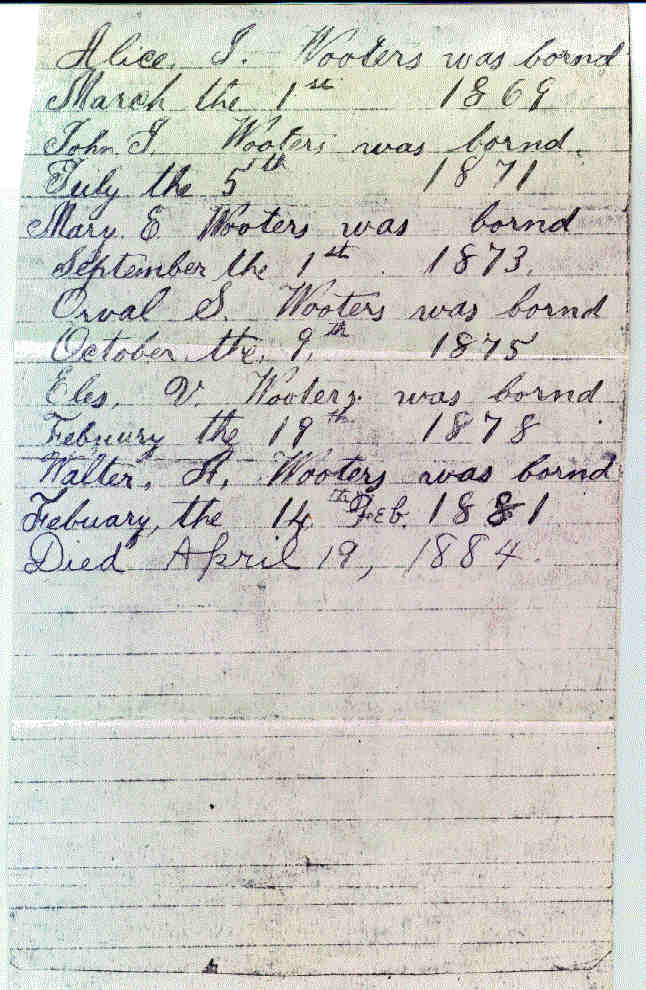 Alice. I. Wooters was bornd
March the 1st 1869
John I. Wooters was bornd.
July the 5th 1871
Mary. E. Wooters was bornd
September the 1st. 1873.
Orval S. Wooters was bornd
October the. 9.th 1875
Eles. V. Wooters. was bornd
Febuury the 19th 1878
Walter. A. Wooters was bornd
Febuary, the 14th Feb. 1881
Died April 19, 1884.